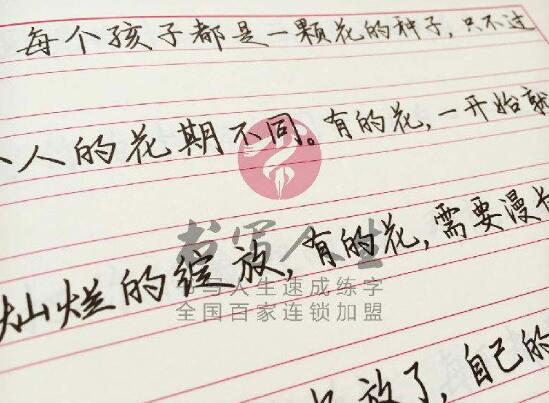 每个孩子都是一颗花的种子,只不过
人的花期不同。有的花,一开始就
灿烂的绽放,有的花,需要漫长
书写人生
写人生速成练字
全国百家连锁加盟
放了,自己的